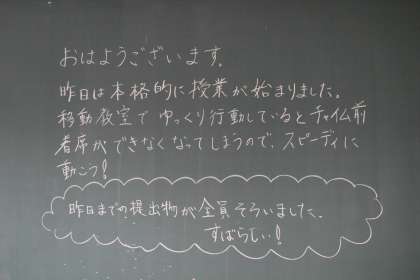 おはようございます。
昨日は本格的に授業が始まりました。
移動教室でゆっくり行動しているとチャイム前
着席ができなくなってしまうので、スピーディに
動こう!
昨日までの提出物が全員そろいました。
すばらしい!